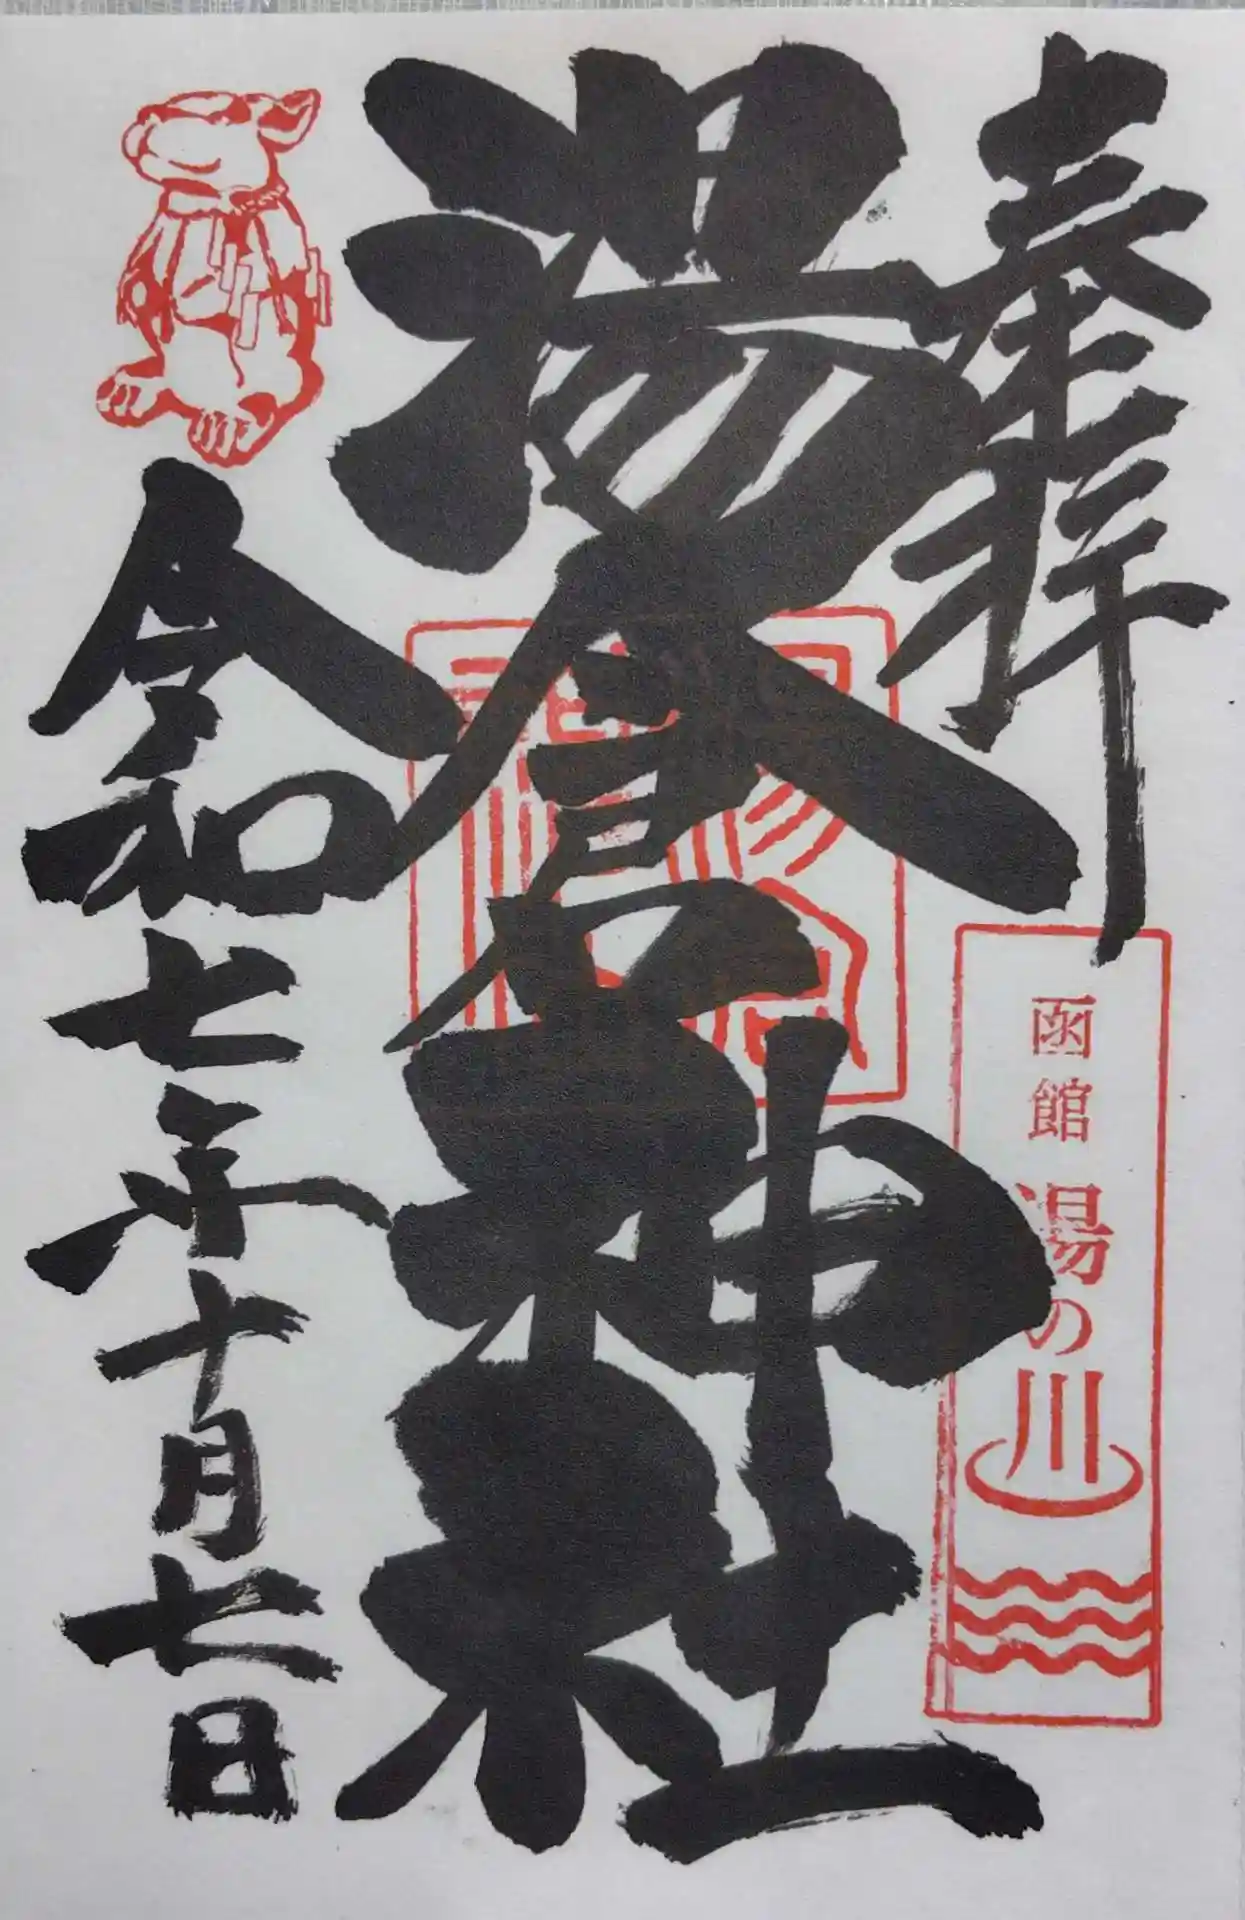 奉拝
函館 湯の川
湯倉神社
令和七年十月七日